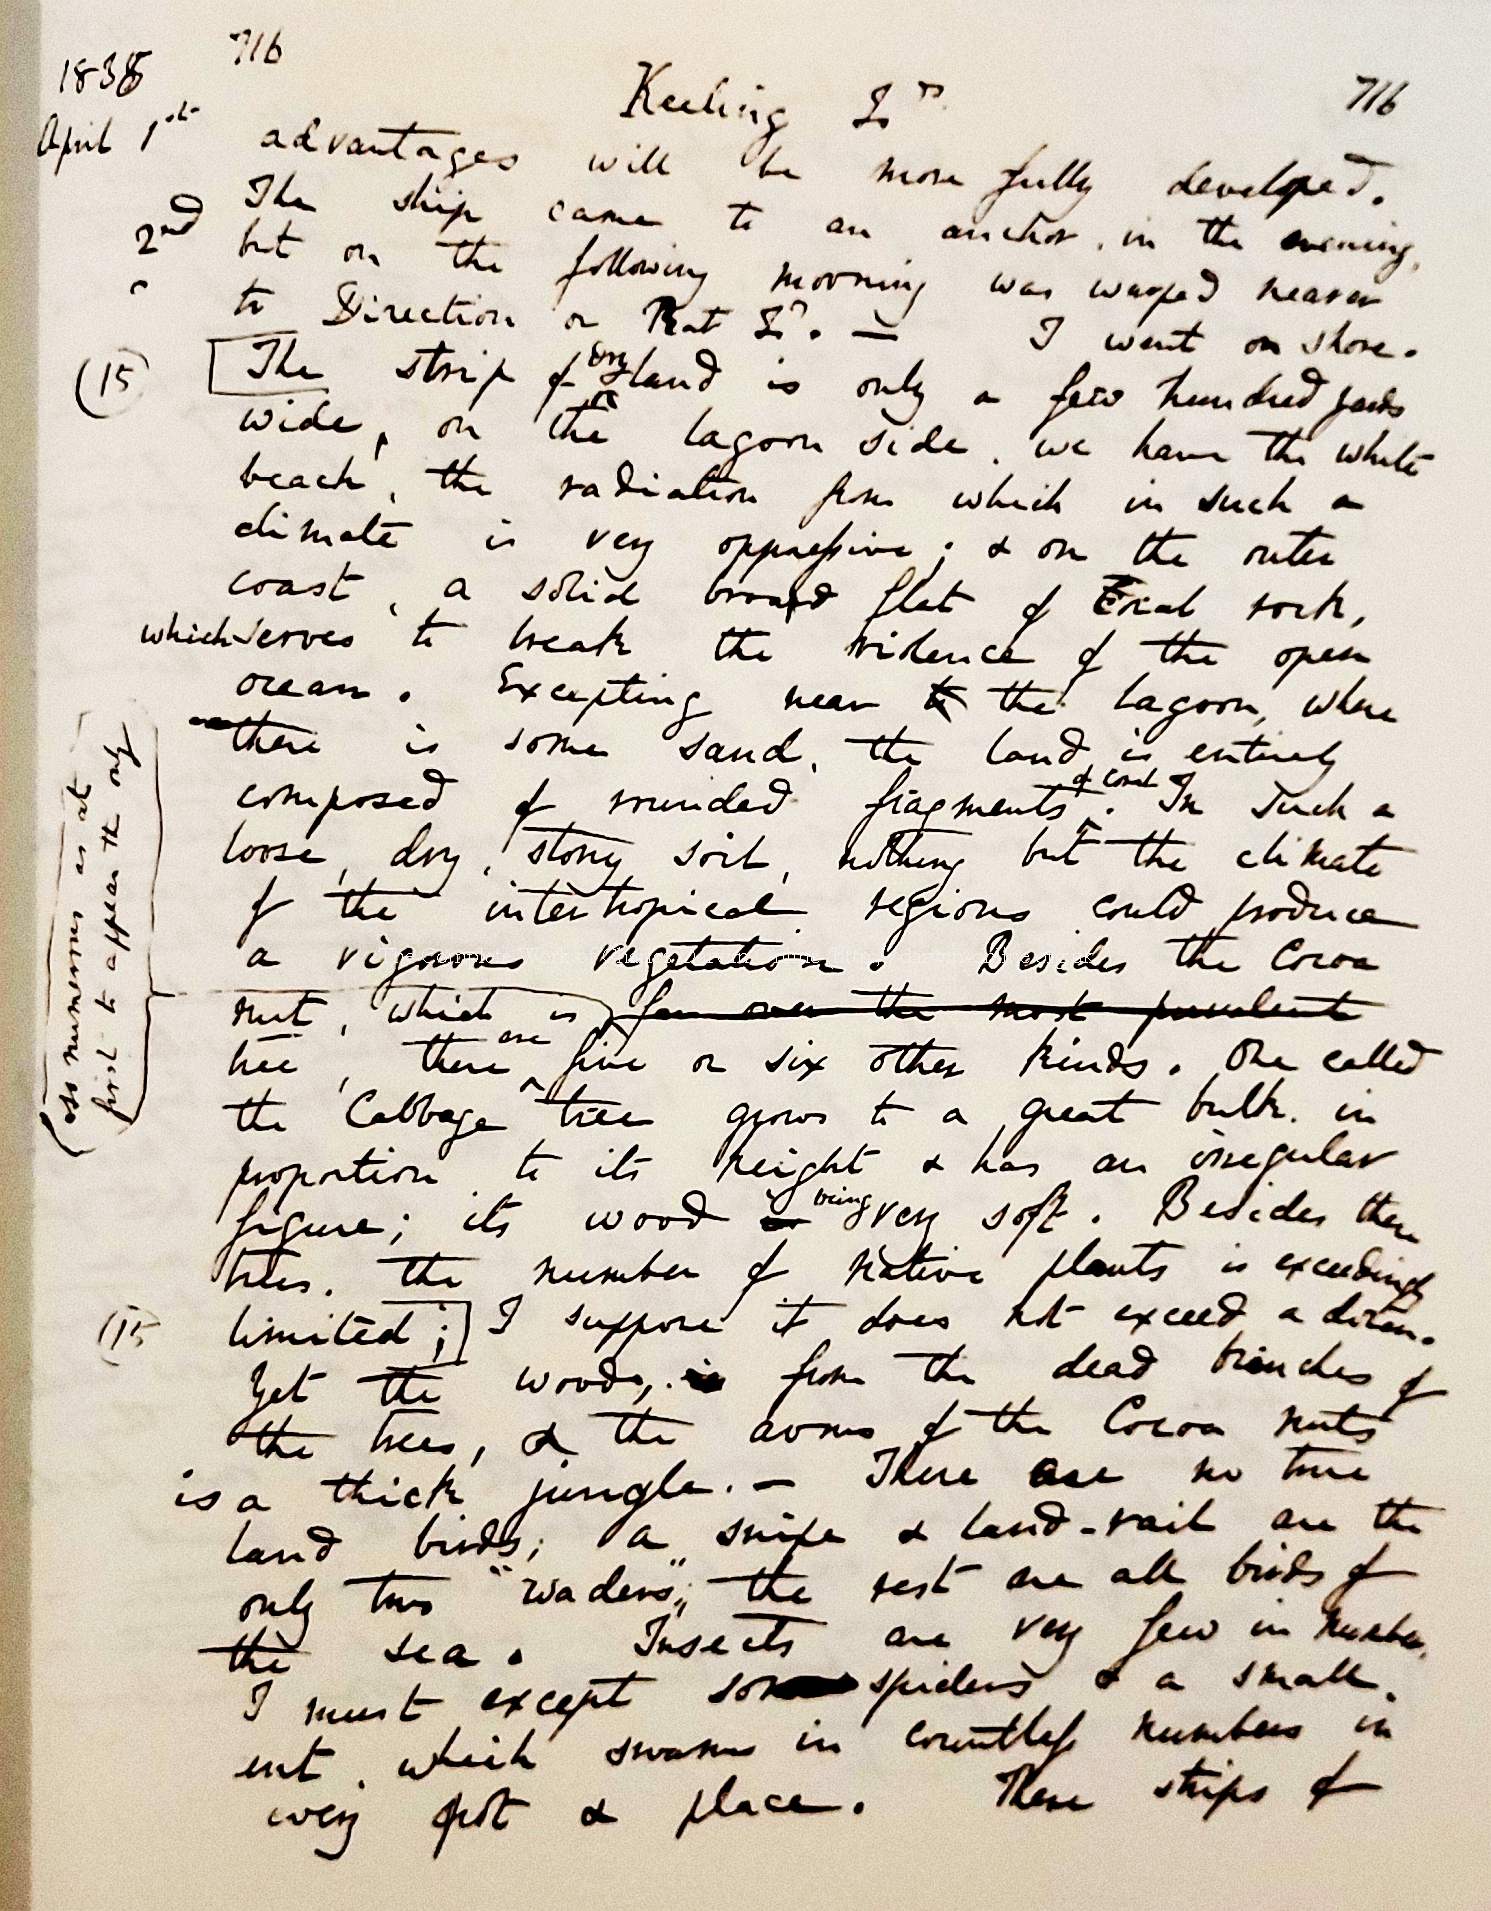 716
1838
Keeling Is
716
April 1st advantages will be more fully developed.
The ship came to an anchor, in the evening,
2nd but on the following morning was warped nearer
to Direction or Rat Is. — I went on shore.
(15) [The strip of dry land is only a few hundred yards
wide, on the lagoon side, we have the white
beach, the radiation from which in such a
climate is very oppressive; & on the outer
coast, a solid broad flat of Coral rock,
which serves to break the violence of the open
ocean. Excepting near the lagoon, where
there is some sand, the land is entirely
composed of rounded fragments of Coral. In such a
loose, dry, stony soil, nothing but the climate
of the intertropical regions could produce
a vigorous vegetation. Besides the Cocoa
nut, which is far over the most prevalent
so numerous as at
first to appear the only
tree, there are five or six other kinds. One called
the Cabbage tree grows to a great bulk, in
proportion to its height & has an irregular
figure; its wood being very soft. Besides these
trees, the number of native plants is exceedingly
(15 limited;] I suppose it does not exceed a dozen.
Yet the woods, from the dead branches of
the trees, & the arms of the Cocoa nuts
is a thick jungle. — There are no true
land birds; a snipe & land-rail are the
only two "waders"; the rest are all birds of
the sea. Insects are very few in number,
I must except some spiders & a small,
ant, which swarms in countless numbers in
every spot & place. These strips of